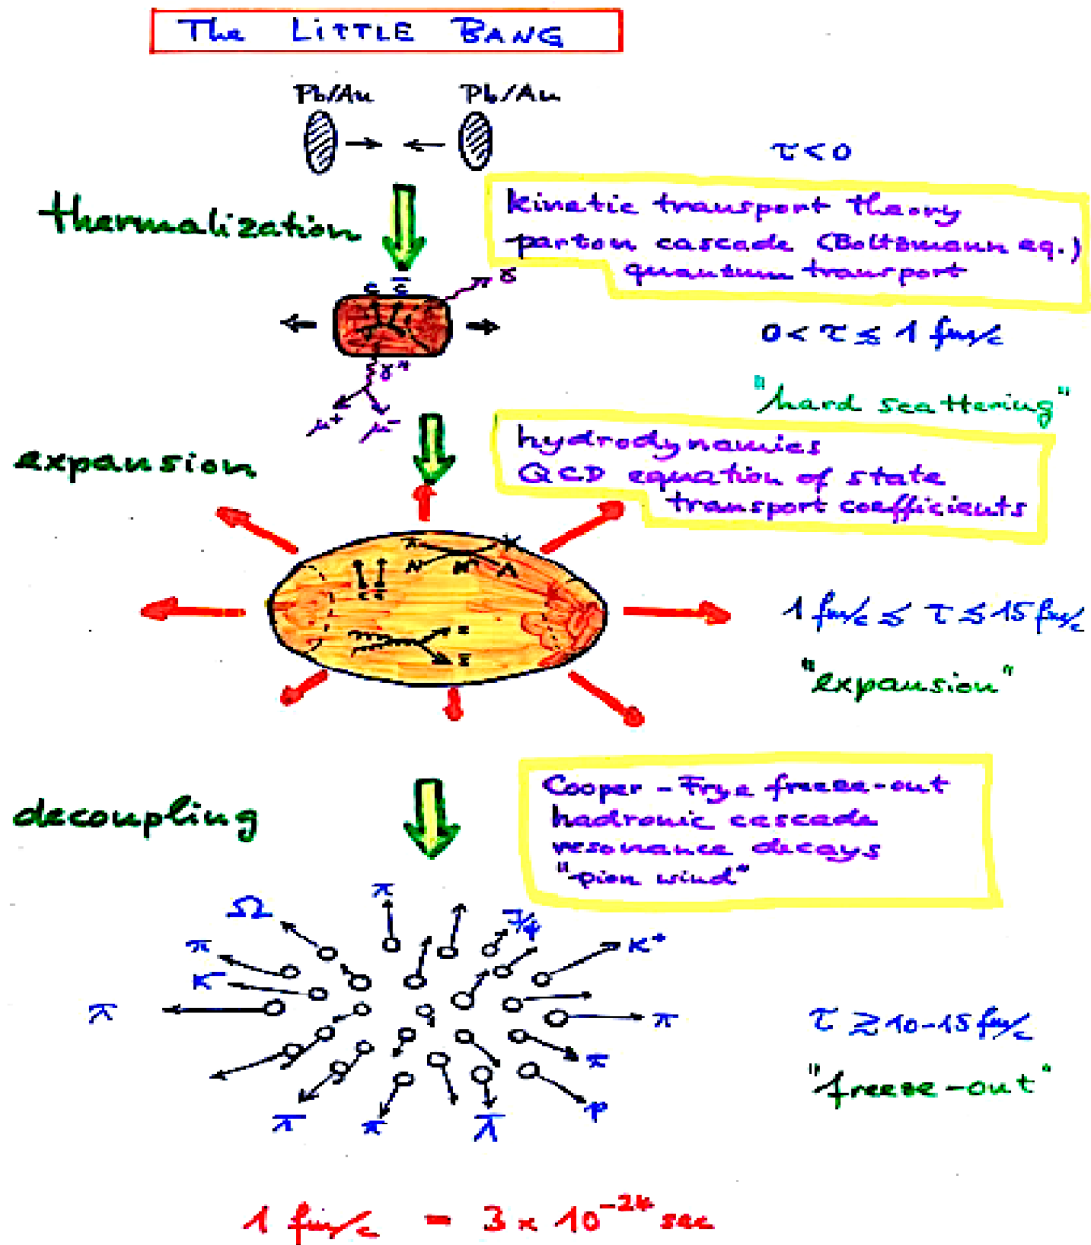 The LITTLE BANG
Pb/Au Pb/Au
τ < 0
thermalization
kinetic transport theory
parton cascade (Boltzmann eq.)
quantum transport
c c̄ γ
0 < τ ≲ 1 fm/c
γ*
μ+ μ-
"hard scattering"
expansion
hydrodynamics
QCD equation of state
transport coefficients
π K
N N* Λ
c c̄
1 fm/c ≲ τ ≲ 15 fm/c
s
s̄
"expansion"
decoupling
Cooper-Frye freeze-out
hadronic cascade
resonance decays
"pion wind"
π
Ω J/ψ
π K+
K-
π π
τ ≳ 10-15 fm/c
π
"freeze-out"
π π Λ̄ p
1 fm/c = 3 x 10^-24 sec